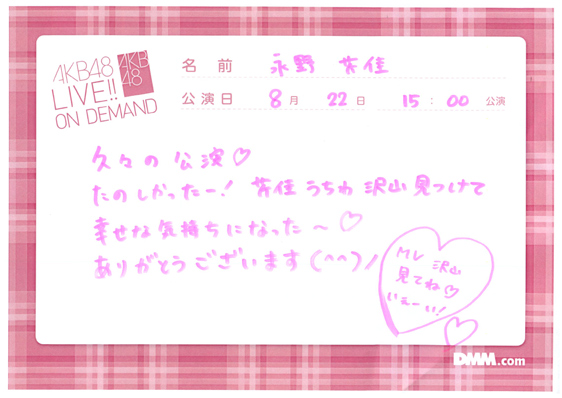 AKB48
LIVE!!
ON DEMAND
AKB
48
名前 永野 芹佳
公演日 8月 22日 15:00 公演
久々の公演♡
たのしかったー! 芹佳うちわ 沢山見つけて
幸せな気持ちになった〜♡
ありがとうございます(^^)/
MV 沢山
見てね♡
いぇーい!
DMM.com